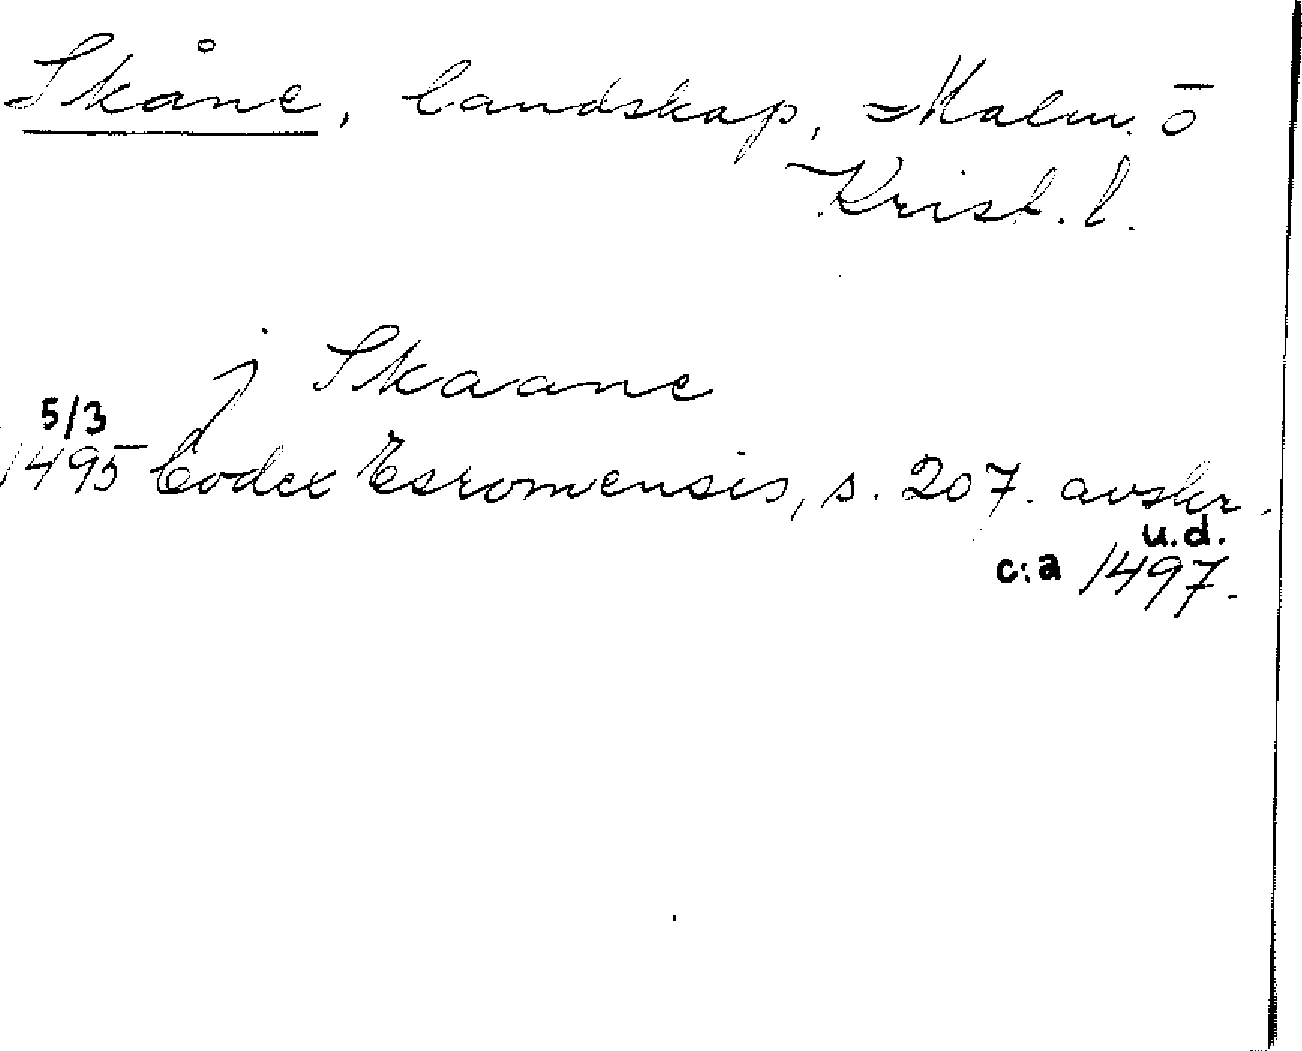 Skåne, landskap, Malm. o
Krist. l.
j Skaane
5/3
1495 Codex Esromensis, s. 207. avskr.
u.d.
c:a 1497.